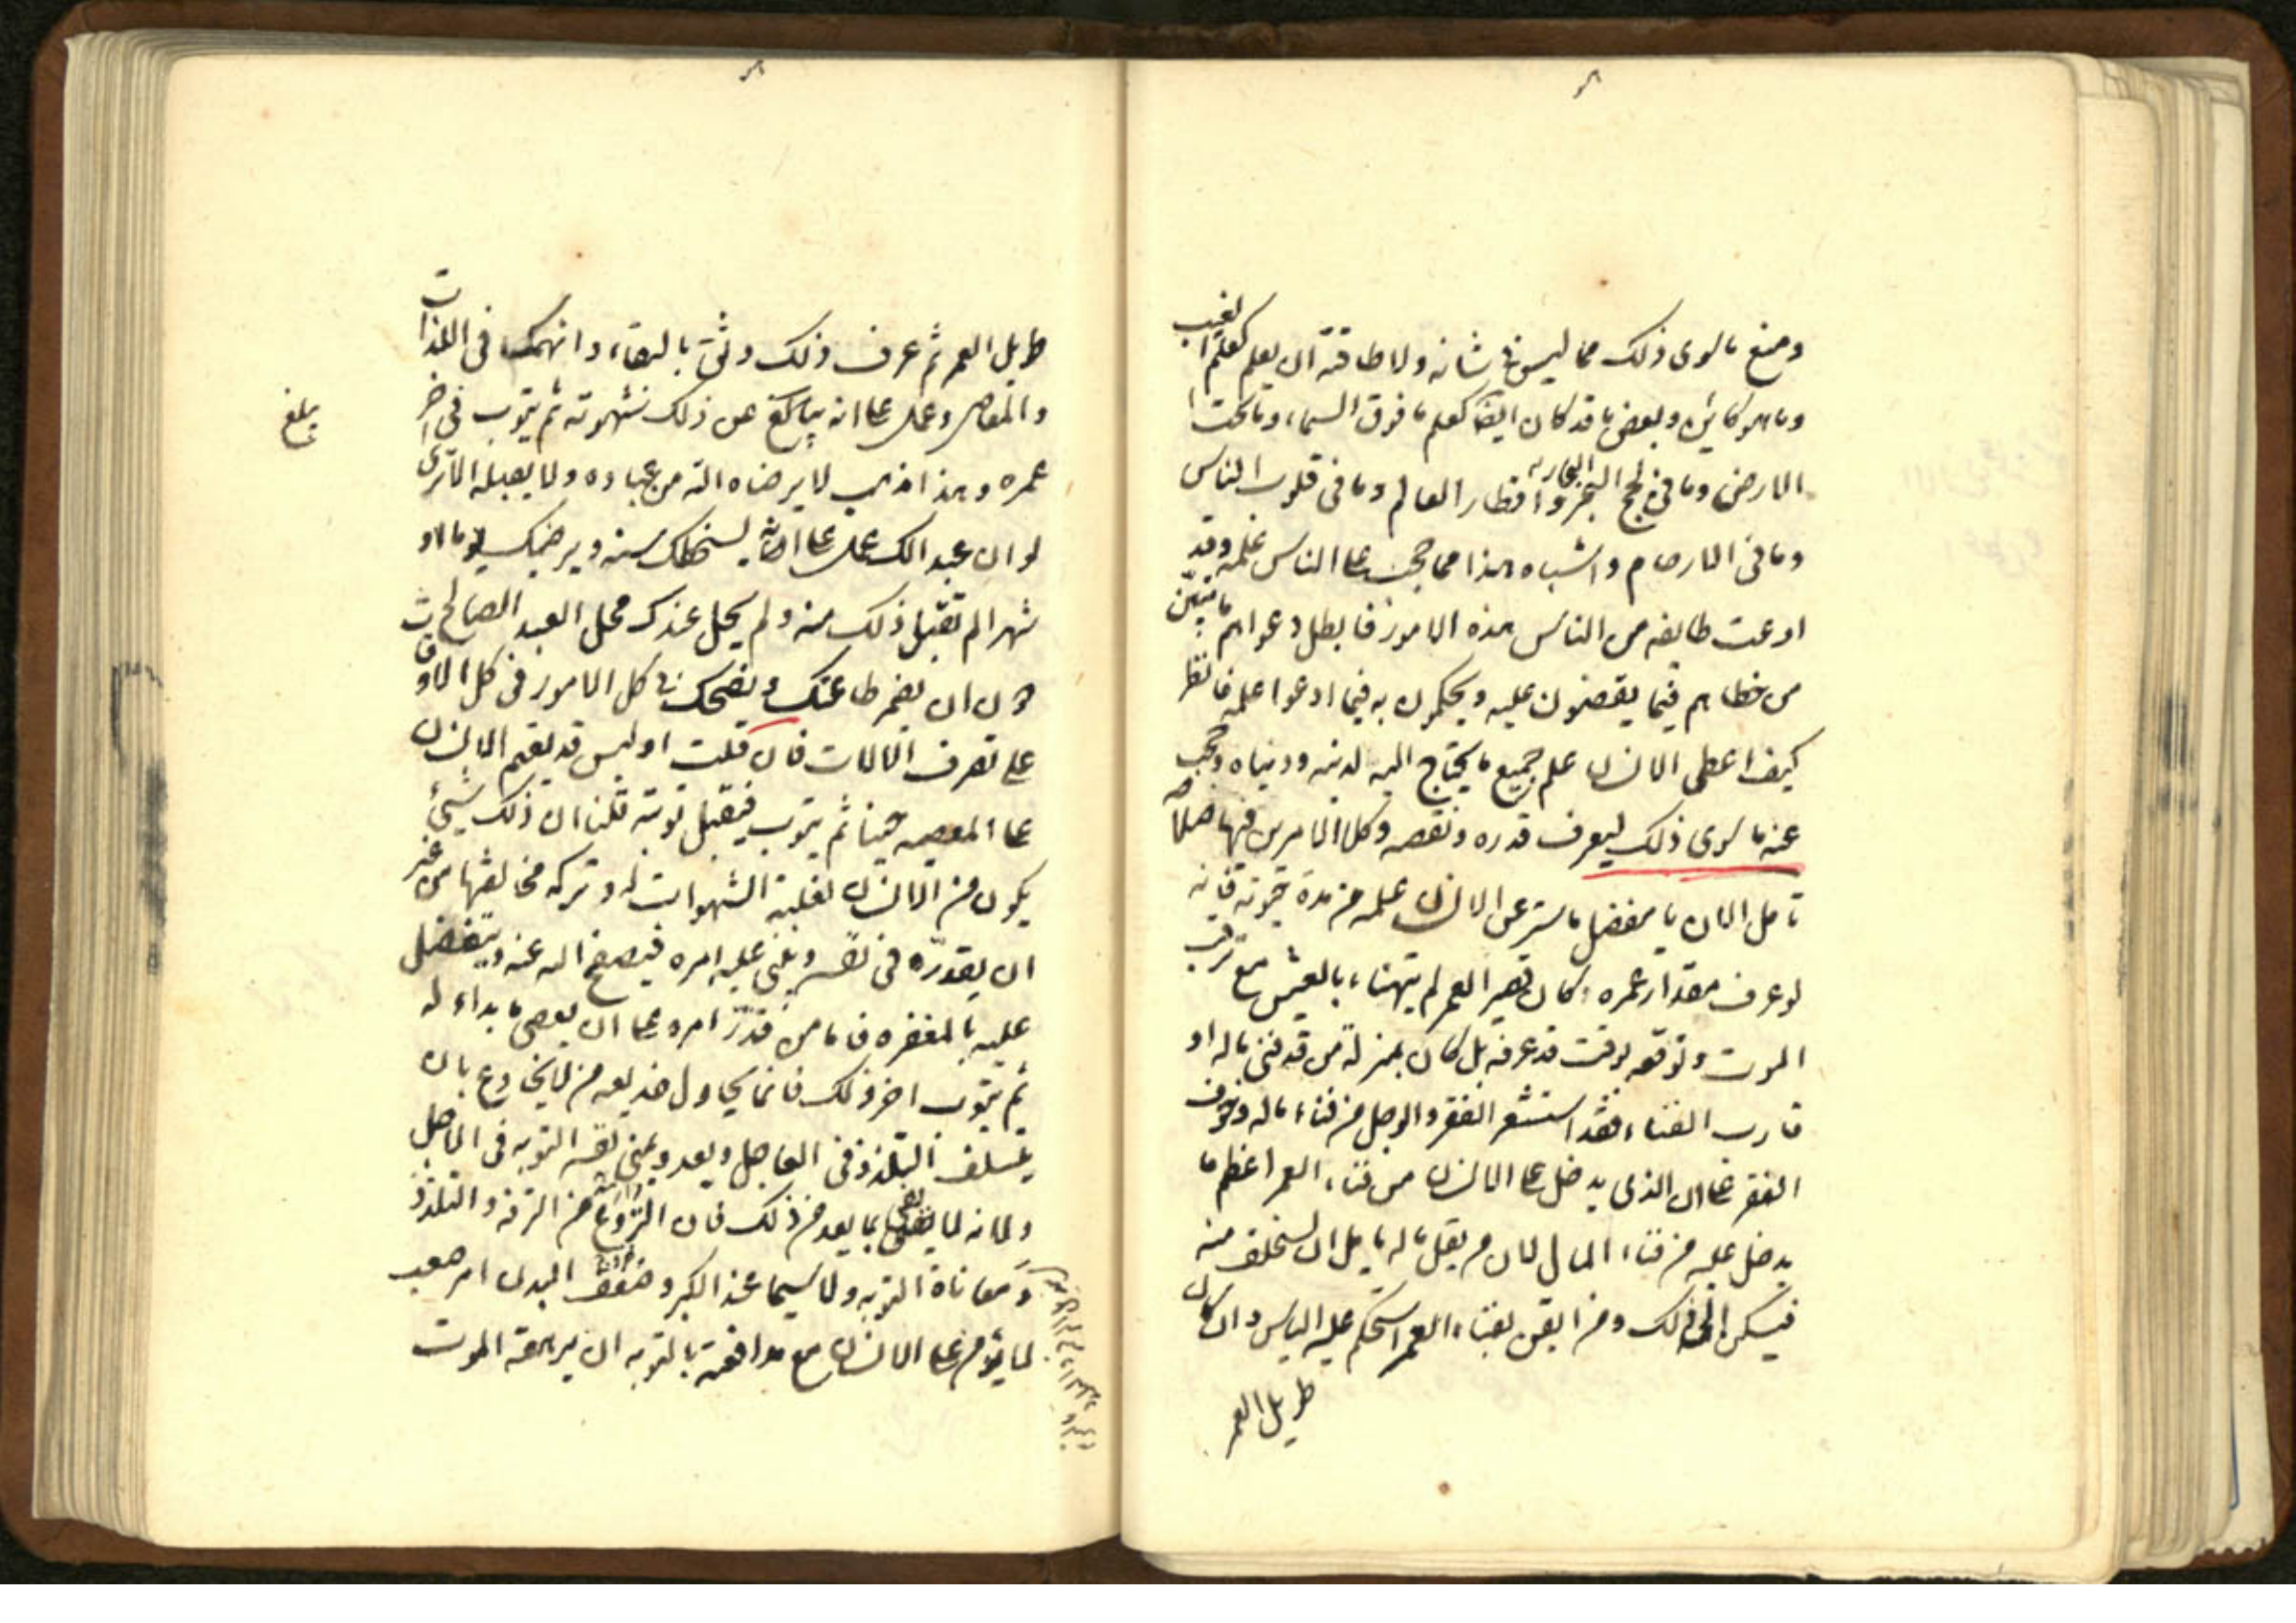 ومنع ما سوى ذلك مما ليس في شانه ولا طاقته ان يعلم كعلم الغيب
وما هو كائن وبعض ما قد كان ايضا كعلم ما فوق السماء وما تحت ا
الارض وما في لجج البحار واقطار العالم وما في قلوب الناس
وما في الارحام واشباه هذا مما حجب على الناس علمه وقد
ادعت طايفه من الناس هذه الامور فابطل دعواهم ما يتبين
من خطاهم فيما يقضون عليه ويحكمون به فيما ادعوا علمه فانظر
كيف اعطى الانسان علم جميع ما يحتاج اليه لدينه ودنياه وحجب
عنه ما سوى ذلك ليعرف قدره ونقصه وكلا الامرين فيها صلاحه
تامل الان يا مفضل ما ستر عن الانسان علمه من مدة حيوته فانه
لو عرف مقدار عمره وكان قصير العمر لم يتهناء بالعيش مع ترقب
الموت وتوقعه لوقت قد عرفه بل كان بمنزلة من قد فنى ماله او
قارب الفناء فقد استشعر الفقر والوجل من فناء ماله وخوف
الفقر على ان الذى يدخل على الانسان من فناء العمر اعظم مما
يدخل عليه من فناء المال لان من يقل ماله يامل ان يستخلف منه
فيسكن الى ذلك ومن ايقن بفناء العمر استحكم عليه الياس وان كان
طويل العمر
طويل العمر ثم عرف ذلك وثق بالبقاء وانهمك في اللذات
والمعاصى وعمل على انه يبلغ من ذلك شهوته ثم يتوب في اخر
عمره وهذا مذهب لا يرضاه الله من عباده ولا يقبله الا ترى
لو ان عبدا لك عمل على انه يسخطك سنه ويرضيك يوما او
شهرا لم تقبل ذلك منه ولم يحل عندك محل العبد الصالح
دون ان يضمر طاعتك ونصحك في كل الامور في كل الاوقات
على تصرف الحالات فان قلت اوليس قد يقيم الانسان
على المعصيه حينا ثم يتوب فيقبل توبته قلنا ان ذلك شيئ
يكون من الانسان لغلبة الشهوات له وتركه مخالفتها من غير
ان يقدرها في نفسه ويبنى عليه امره فيصفح الله عنه ويتفضل
عليه بالمغفره فاما من قدر امره على ان يعصى ما بداء له
ثم يتوب اخر ذلك فانما يحاول خديعه من لا يخادع بان
يتسلف التلذذ في العاجل ويعد ويمنى نفسه التوبه في الاجل
ولانه لا يفى بما يعد من ذلك فان النزوع من الترفه والتلذذ
ومعاناة التوبه ولا سيما عند الكبر وضعف البدن امر صعب
لا يؤمن على الانسان مع مدافعته بالتوبه ان يرهقه الموت
بلغ